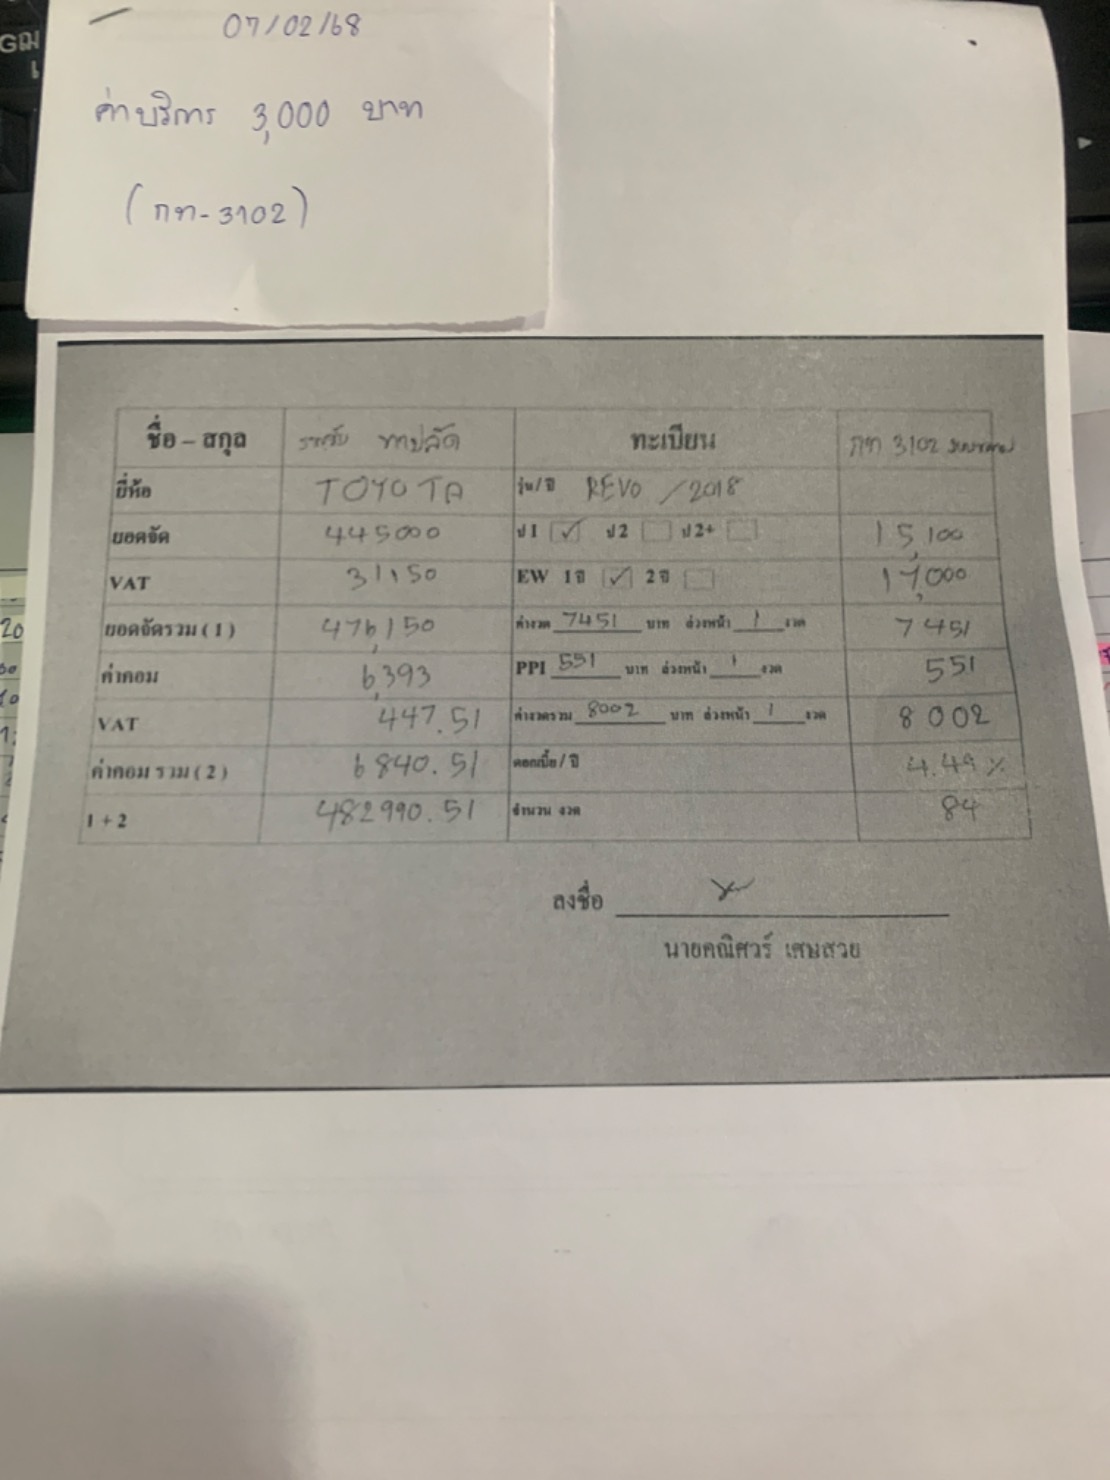 07/02/68
ค่าบริการ 3,000 บาท
(กท-3102)
ชื่อ – สกุล ทะเบียน กท 3102
ยี่ห้อ TOYOTA รุ่น/ปี REVO / 2018
ยอดจัด 445000 ป1 ✓ ป2 ป2+ 15,100
VAT 31,150 EW 1ปี ✓ 2ปี 17,000
ยอดจัดรวม ( 1 ) 476,150 ค่างวด 7451 บาท ล่วงหน้า 1 งวด 7451
ค่าคอม 6,393 PPI 551 บาท ล่วงหน้า 1 งวด 551
VAT 447.51 ค่างวดรวม 8002 บาท ล่วงหน้า 1 งวด 8002
ค่าคอม รวม ( 2 ) 6840.51 ดอกเบี้ย / ปี 4.49 %
1 + 2 482990.51 จำนวน งวด 84
ลงชื่อ
นายคณิศวร์ เศษสวย